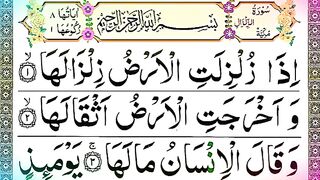 سُورَةُ الزِّلْزَال مَدَنِيَّة
بِسْمِ اللّٰهِ الرَّحْمٰنِ الرَّحِيْمِ
اٰيَاتُهَا ٨ رُكُوْعُهَا ١
اِذَا زُلْزِلَتِ الْاَرْضُ زِلْزَالَهَا ۙ﴿١﴾
وَ اَخْرَجَتِ الْاَرْضُ اَثْقَالَهَا ۙ﴿٢﴾
وَ قَالَ الْاِنْسَانُ مَا لَهَا ۚ﴿٣﴾ يَوْمَىِٕذٍ